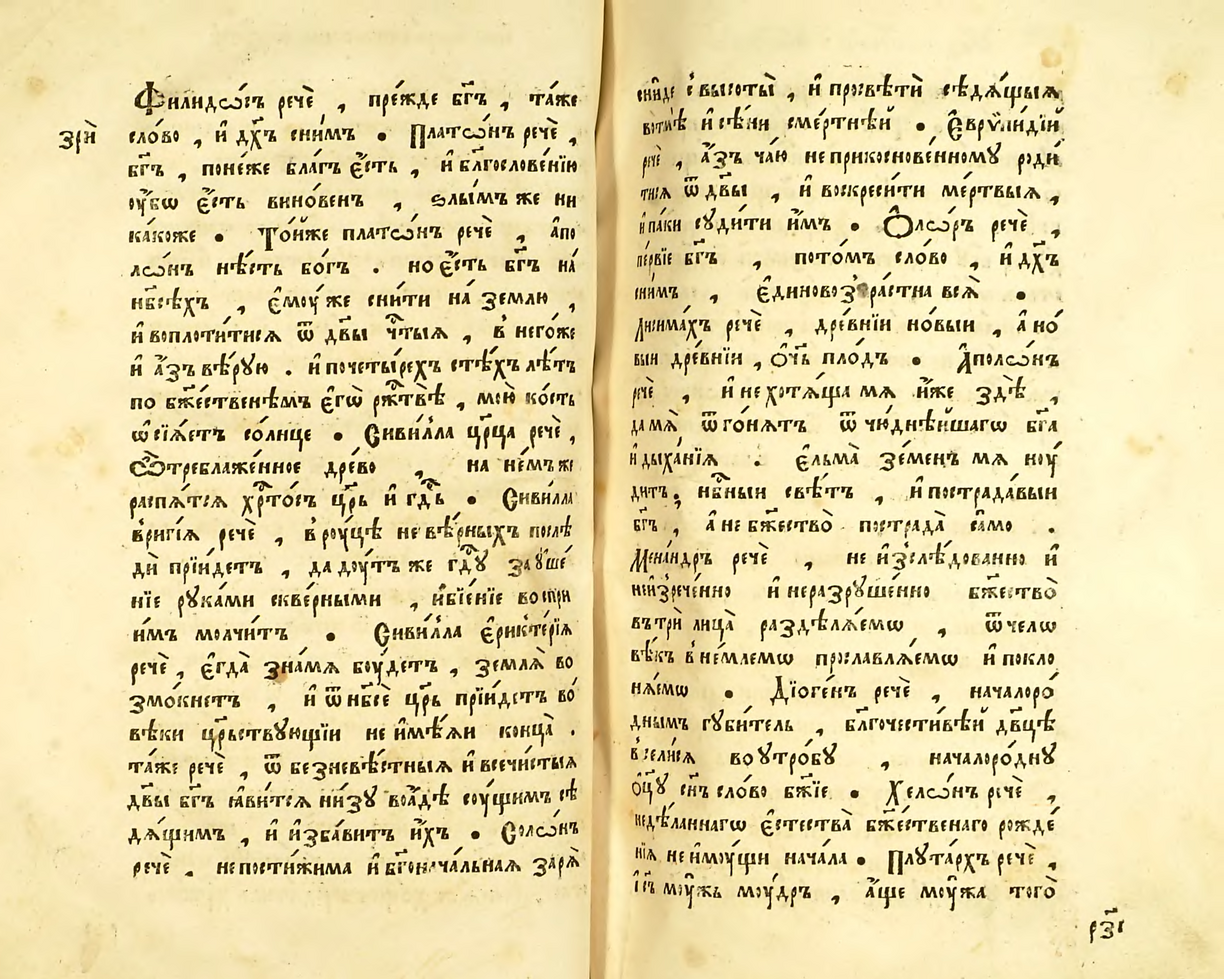 Филидѡ́съ речѐ , пре́жде бг҃ъ , та́же
зрѝ
сло́во , и҆ дх҃ъ сни́мъ . Платѡ́нъ речѐ ,
бг҃ъ , поне́же бла́гъ є҆́сть , и҆ бл҃гослове́нїю
оу҆́бѡ є҆́сть вино́венъ , ѕлы́мъ же ни
ка́коже . То́йже плато́нъ речѐ , апо
лѡ́нъ нѣ́сть бо́гъ . но є҆́сть бг҃ъ на́
нб҃сѣ́хъ , є҆мꙋ́же сни́ти на́ землю ,
и҆ воплоти́тисѧ ѿ дв҃ы чⷭ҇тыѧ , в него́же
и҆ а҆́зъ вѣ́рꙋю . и҆ по четы́рехъ стѣ́хъ лѣ́тъ
по бж҃е́ственѣмъ є҆гѡ̀ ржⷭ҇твѣ̀ , мою̀ ко́сть
ѡ҆сїѧ́етъ со́лнце . Сиви́лла цр҃ца речѐ ,
Ѽ треблаже́нное дре́во , на не́мъ же
распѧ́тсѧ хрⷭ҇то́съ цр҃ь и҆ гдⷭ҇ь . Сиви́лла
ври́гїѧ речѐ , в рꙋ́цѣ неве́рныхъ послѣ
дѝ прїи́детъ , дадꙋ́тъ же гдⷭ҇ꙋ заꙋше́
нїе рꙋка́ми скве́рными , и҆ бїе́нїе воспри
и́мъ молчи́тъ . Сиви́лла є҆рикте́рїѧ
речѐ , є҆гда̀ зна́мѧ бꙋ́детъ , землѧ̀ во
змо́кнетъ , и҆ ѿ нб҃сѐ цр҃ь прїи́детъ во́
вѣ́ки цр҃ьствꙋющїи не и҆мѣ́ѧи конца̀ .
та́же речѐ , ѿ безневѣ́стныѧ и҆ всечи́стыѧ
дв҃ы бг҃ъ ꙗ҆ви́тсѧ ни́зꙋ во а҆́дѣ сꙋ́щимъ сѣ
дѧ́щимъ , и҆ и҆зба́витъ и҆́хъ . Солѡ́нъ
речѐ . непости́жима и҆ бг҃онача́льнаѧ зарѧ̀
сни́де с высоты̀ , и҆ просвѣ́ти сѣдѧ́щыѧ
во тмѣ̀ и҆ сѣ́ни сме́ртнѣй . Є҆врѷли́дїй
речѐ , а҆́зъ ча́ю неприкоснове́нномꙋ роди́
тисѧ ѿ дв҃ы , и҆ воскреси́ти ме́ртвыѧ ,
и҆ па́ки сꙋди́ти и҆̀мъ . Ѻ҆лѡ́ръ речѐ ,
пе́рвїе бг҃ъ , пото́мъ сло́во , и҆ дх҃ъ
сни́мъ , є҆диново́зрастна всѧ̀ .
Лисима́хъ речѐ , дре́внїи но́выи , а҆ но́
выи дре́внїи , ѻч҃ь пло́дъ . А҆полѡ́нъ
речѐ , и҆ не хотѧ́ща мѧ и҆́же здѣ̀ ,
да мѧ̀ ѿго́нѧтъ ѿ чюднѣ́йшагѡ бг҃а
и҆ дыха́нїѧ . є҆льма̀ зе́менъ мѧ нꙋ́
дитъ , нбⷭ҇ныи свѣ́тъ , и҆ пострада́выи
бг҃ъ , а҆ не бж҃ество̀ пострада̀ само . 
Мена́ндръ речѐ , не и҆зслѣ́дованно и҆
неи҆зрече́нно и҆ неразрꙋше́нно бж҃ество̀
въ трѝ лица̀ раздѣлѧ́емѡ , ѿ челѡ
вѣ́къ внемлемѡ прославлѧ́емѡ и҆ покло
нѧ́емѡ . Дїоге́нъ речѐ , началоро́
днымъ гꙋби́тель , бл҃гочести́вѣй дв҃цѣ
вселисѧ во ꙋтро́бꙋ , началоро́днꙋ
ѻц҃ꙋ сн҃ъ сло́во бж҃їе . Хелсѡ́нъ речѐ ,
недѣ́ланнагѡ є҆стества̀ бж҃е́ственаго рожде́
нїѧ не и҆мꙋ́щи нача́ла . Плꙋта́рхъ речѐ ,
мꙋ́жь мꙋ́дръ , а҆́ще мꙋ́жа того̀